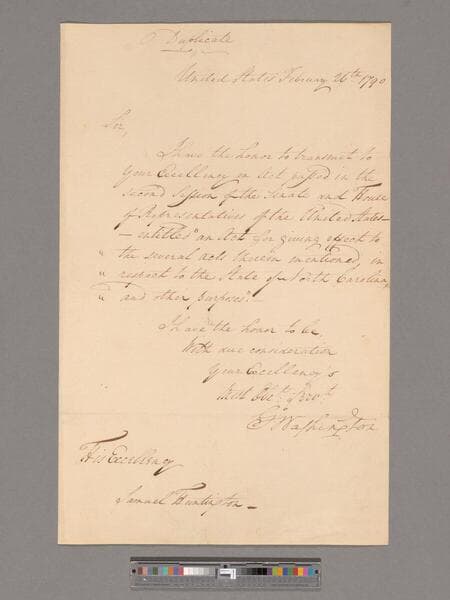 Duplicate
United States February 26th. 1790
Sir,
I have the honor to transmit to
Your Excellency an Act passed in the
second Session of the Senate and House
of Representatives of the United States
— entitled "an Act for giving effect to
" the several acts therein mentioned, in
" respect to the State of North Carolina,
" and other purposes".—
I have the honor to be,
With due consideration
Your Excellency's
Most Obt. Servt.
Go. Washington
His Excellency
Samuel Huntington —